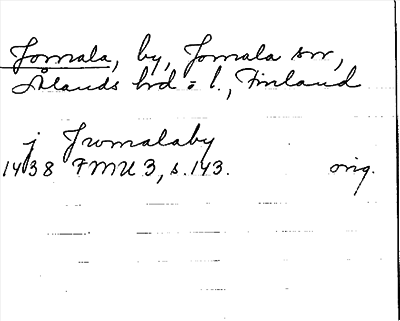 Jomala, by, Jomala sn,
Ålands hd o. l., Finland
j Jwmalaby
1438 FMU 3, s. 143. orig.